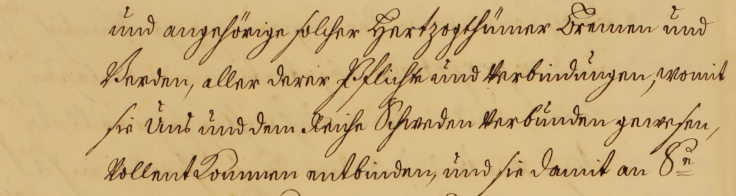 und angehörige solcher Hertzogthümer Bremen und
Verden, aller derer Pflicht und Verbindungen, womit
sie Uns und dem Reiche Schweden verbunden gewesen,
Vollentkommen entbinden, und sie damit an Sr